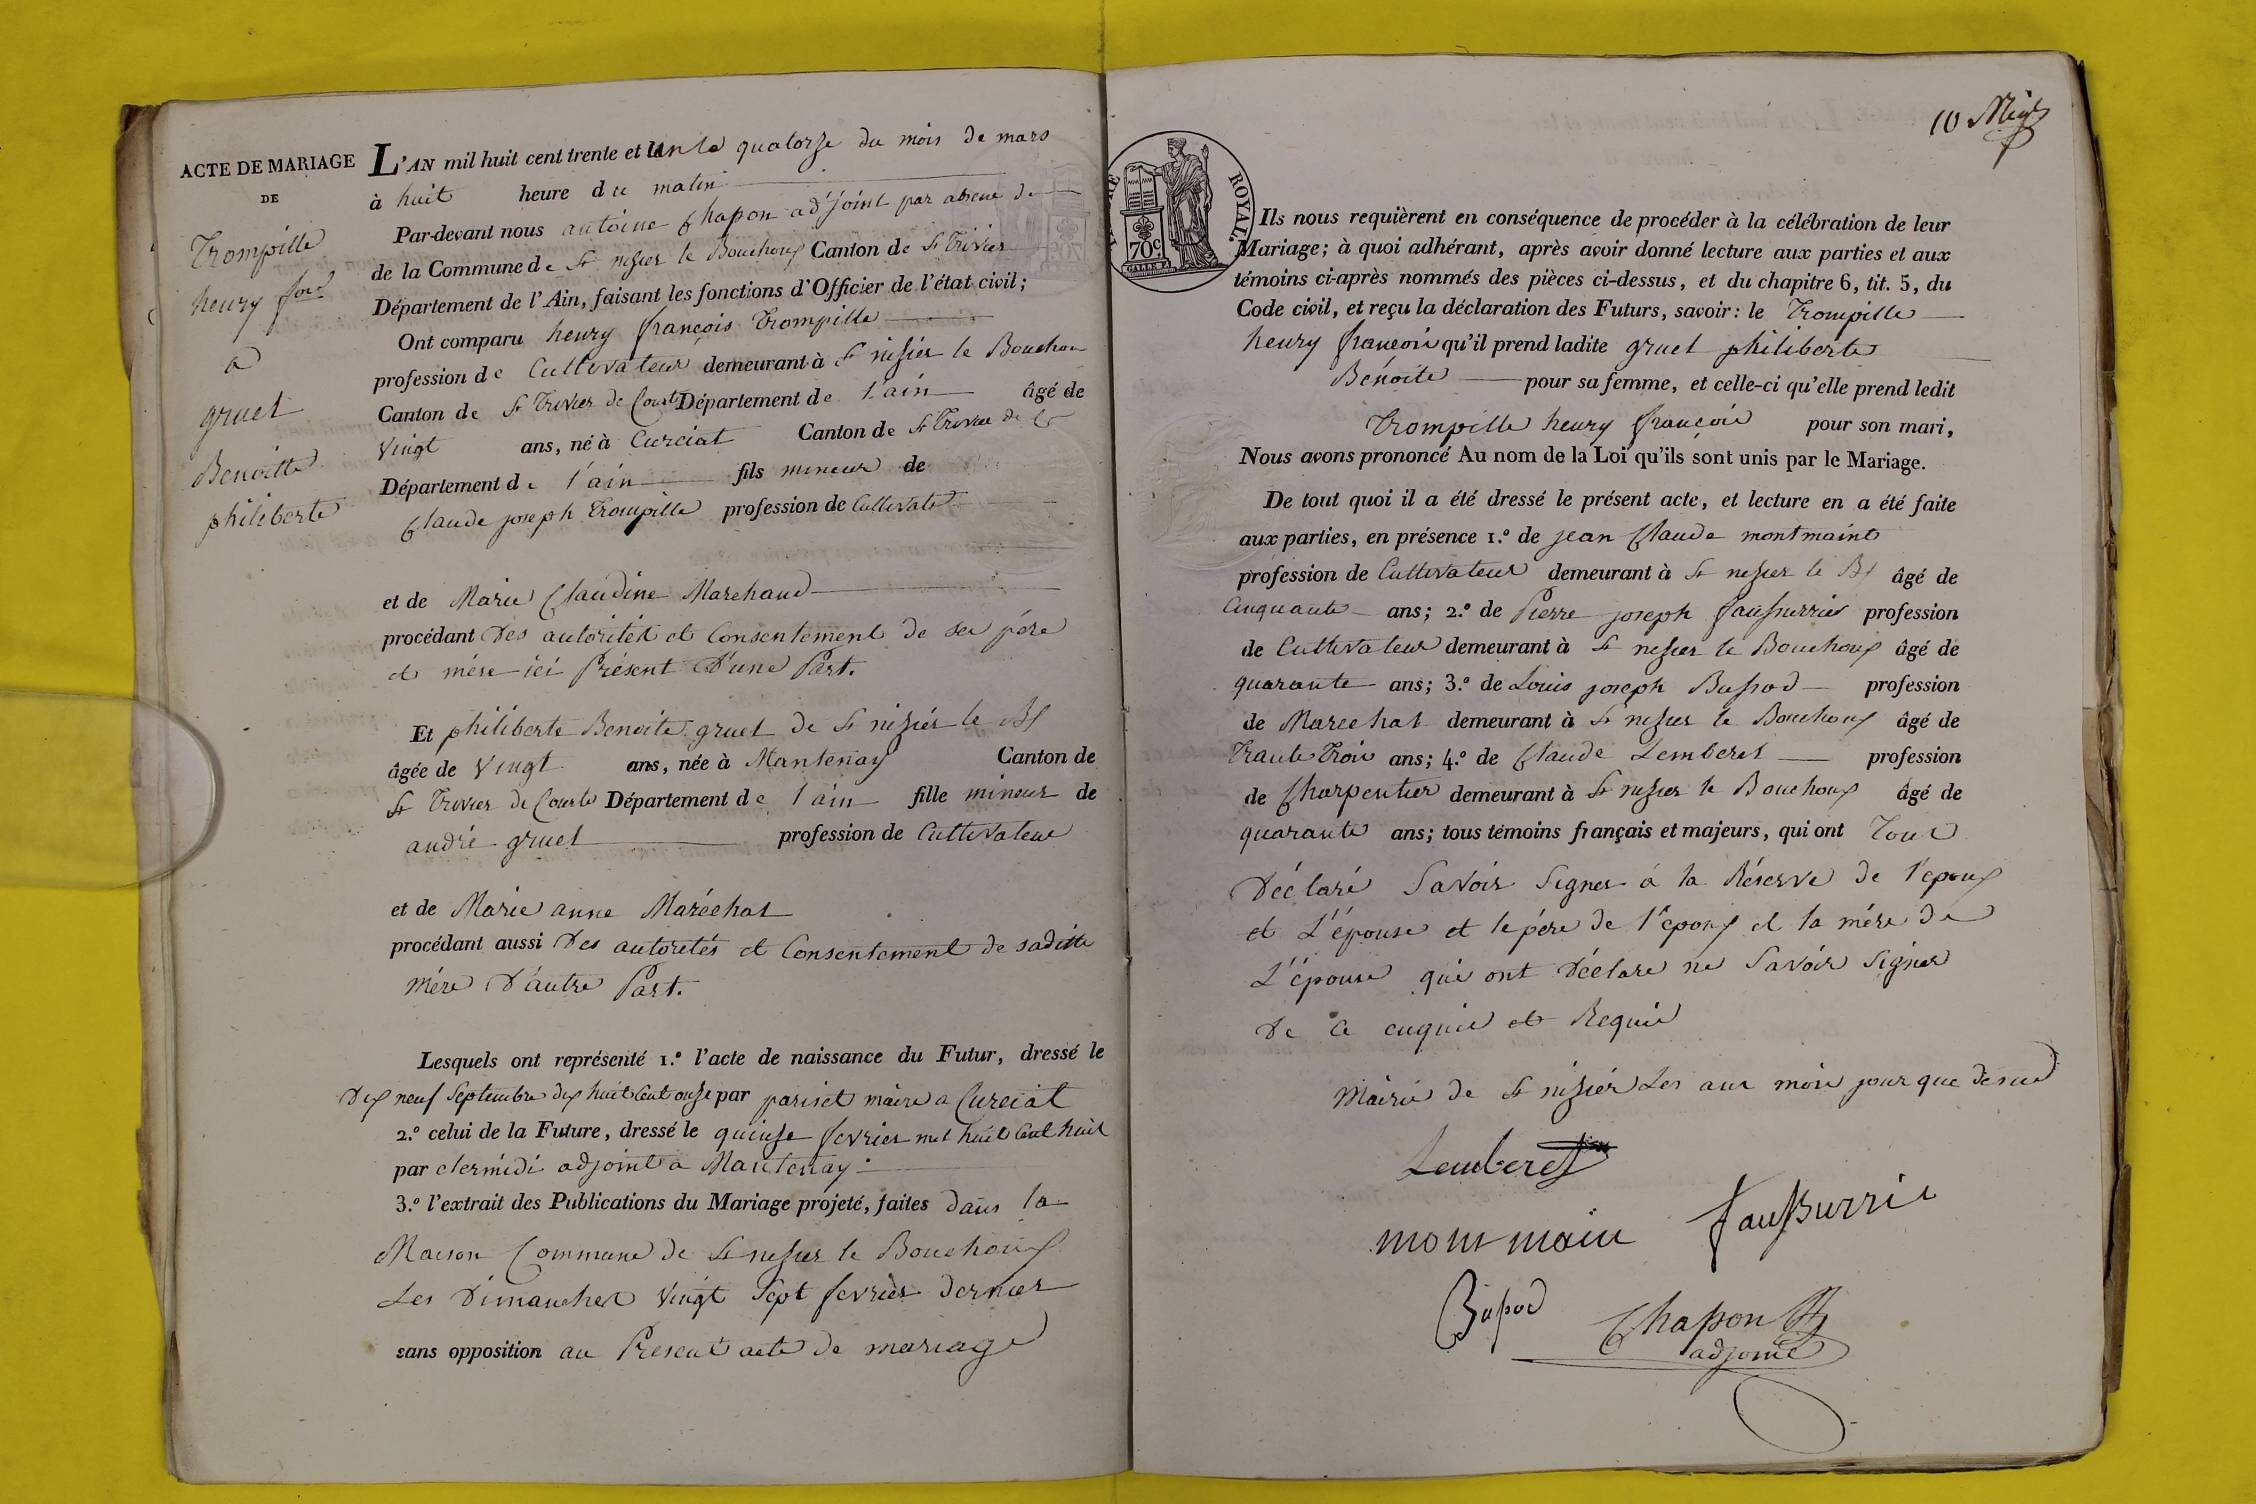 ACTE DE MARIAGE
DE
Trompille
henry fois
a
gruel
Benoitte
philiberte
L'AN mil huit cent trente et un le quatorze du mois de mars
à huit heure du matin
Par-devant nous antoine Chapon adjoint par absence de
de la Commune de St nizier le Bouchoux Canton de St Trivier
Département de l'Ain, faisant les fonctions d'Officier de l'état civil;
Ont comparu henry françois Trompille
profession de Cultivateur demeurant à St nizier le Bouchou
Canton de St Trivier de Court Département de l'ain âgé de
Vingt ans, né à Curciat Canton de St Trivier de C
Département de l'ain fils mineur de
Claude joseph Trompille profession de Cultivat
et de Marie Claudine Marchand
procédant Des autorités et Consentement de ses père
et mère ici Présent D'une Part.
Et philiberte Benoite gruel de St nizier le Bx
âgée de Vingt ans, née à Mantenay Canton de
St Trivier de Courte Département de l'ain fille mineur de
andré gruel profession de Cultivateur
et de Marie anne Maréchal
procédant aussi Des autorités et Consentement de saditte
Mère D'autre Part.
Lesquels ont représenté 1.º l'acte de naissance du Futur, dressé le
Dix neuf Septembre dix huit Cent onze par pariset maire a Curciat
2.º celui de la Future, dressé le quinze fevrier mil huit Cent huit
par clermidi adjoint a Mantenay
3.º l'extrait des Publications du Mariage projeté, faites dans la
Maison Commune de St nizier le Bouchoux
Les Dimanches Vingt Sept fevrier dernier
sans opposition au Présent acte de mariage
10
ROYAL.
70c
Ils nous requièrent en conséquence de procéder à la célébration de leur
Mariage; à quoi adhérant, après avoir donné lecture aux parties et aux
témoins ci-après nommés des pièces ci-dessus, et du chapitre 6, tit. 5, du
Code civil, et reçu la déclaration des Futurs, savoir: le Trompille
henry françois qu'il prend ladite gruel philiberte
Bénoite pour sa femme, et celle-ci qu'elle prend ledit
Trompille henry françois pour son mari,
Nous avons prononcé Au nom de la Loi qu'ils sont unis par le Mariage.
De tout quoi il a été dressé le présent acte, et lecture en a été faite
aux parties, en présence 1.º de jean Claude montmaint
profession de Cultivateur demeurant à St nizier le Bx âgé de
Cinquante ans; 2.º de Pierre joseph faussurrier profession
de Cultivateur demeurant à St nizier le Bouchoux âgé de
quarante ans; 3.º de Louis joseph Bussod profession
de Marechal demeurant à St nizier le Bouchoux âgé de
Trante Trois ans; 4.º de Claude Lemberet profession
de Charpentier demeurant à St nizier le Bouchoux âgé de
quarante ans; tous témoins français et majeurs, qui ont Tous
Déclaré Savoir Signer à la Réserve de l'epoux
et L'épouse et le père de l'epoux et la mère de
L'épouse qui ont Déclare ne Savoir Signer
De ce enquis et Requis
Mairie de St nizier Les an mois jour que dessus
Lemberet
mommain
Bussod
Chapon
adjoint